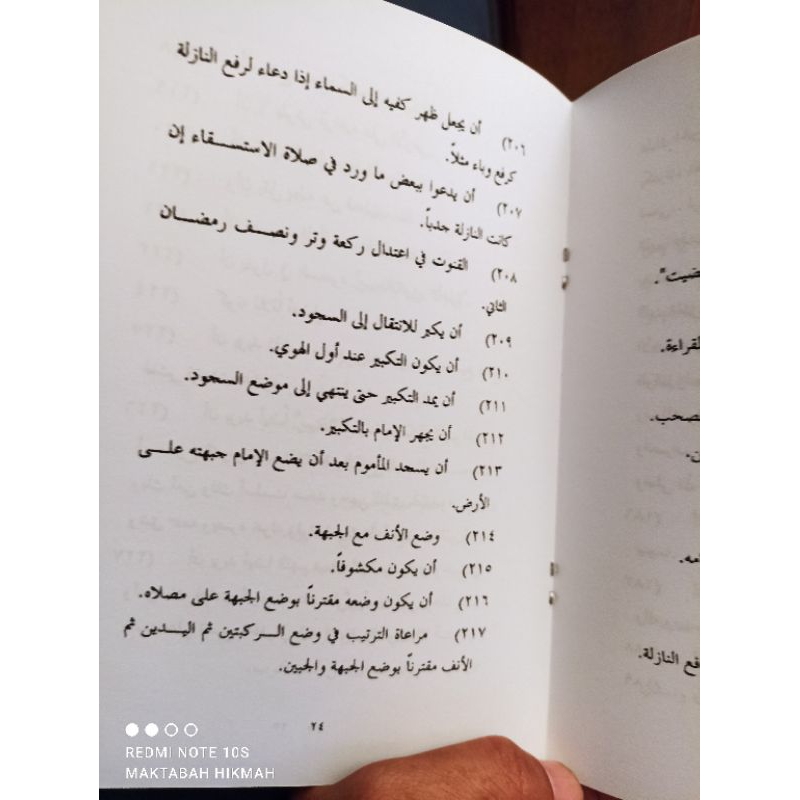 ٢٠٦) أن يجعل ظهر كفيه إلى السماء إذا دعاء لرفع النازلة
كرفع وباء مثلاً.
٢٠٧) أن يدعوا ببعض ما ورد في صلاة الاستسقاء إن
كانت النازلة جدباً.
٢٠٨) القنوت في اعتدال ركعة وتر ونصف رمضان
الثاني.
٢٠٩) أن يكبر للانتقال إلى السجود.
٢١٠) أن يكون التكبير عند أول الهوي.
٢١١) أن يمد التكبير حتى ينتهي إلى موضع السجود.
٢١٢) أن يجهر الإمام بالتكبير.
٢١٣) أن يسجد المأموم بعد أن يضع الإمام جبهته على
الأرض.
٢١٤) وضع الأنف مع الجبهة.
٢١٥) أن يكون مكشوفاً.
٢١٦) أن يكون وضعه مقترناً بوضع الجبهة على مصلاه.
٢١٧) مراعاة الترتيب في وضع الركبتين ثم اليدين ثم
الأنف مقترناً بوضع الجبهة والجبين.
٢٤
لقراءة.
رفع النازلة.
REDMI NOTE 10S
MAKTABAH HIKMAH